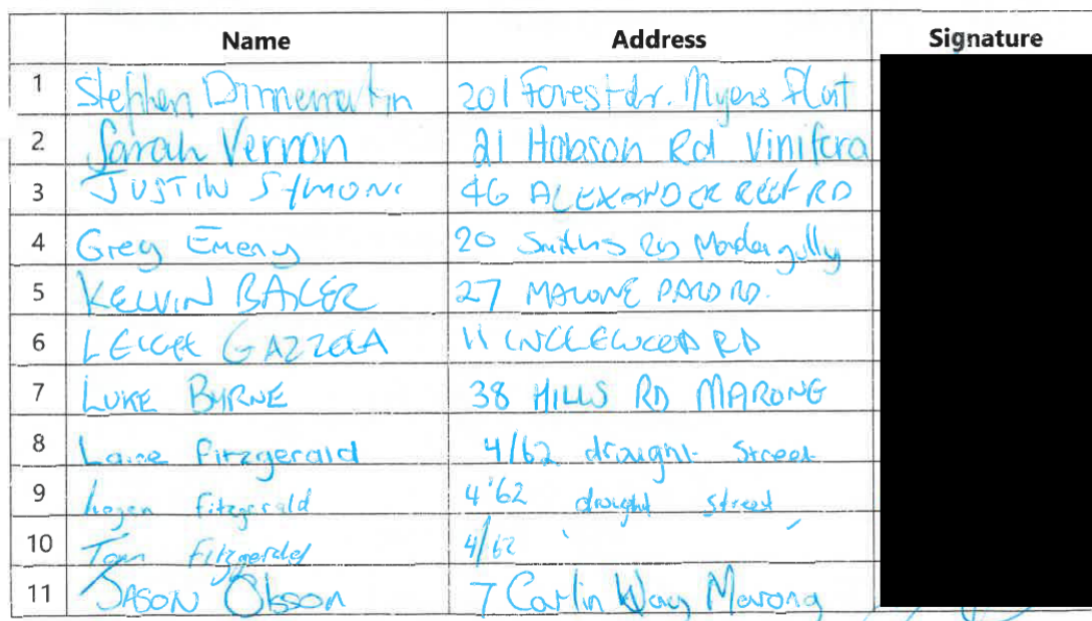 Name Address Signature
1 Stephen 201 Forest dr. Myers Flat
2 Sarah Vernon 21 Hobson Rd Vinifera
3 JUSTIN SYMONS 46 ALEXANDER REEF RD
4 Greg Emery 20 Smiths Rd
5 KELVIN BAKER 27 MALONE RD.
6 GAZZOLA 11 INGLEWOOD RD
7 LUKE BYRNE 38 HILLS RD MARONG
8 Lane Fitzgerald 4/62 draught Street
9 Logan Fitzgerald 4/62 draught street
10 Tom Fitzgerald 4/62
11 JASON Olsson 7 Carlin Way Marong